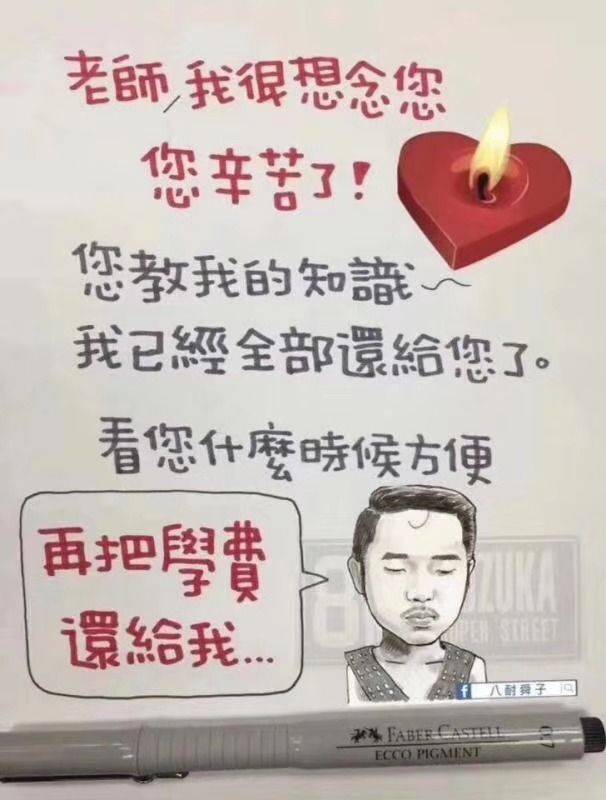 老師,我很想念您
您辛苦了!
您教我的知識~
我已經全部還給您了。
看您什麼時候方便
再把學費
還給我...
8
ZUKA
SUPER STREET
f 八耐舜子
FABER CASTELL
ECCO PIGMENT
0.7